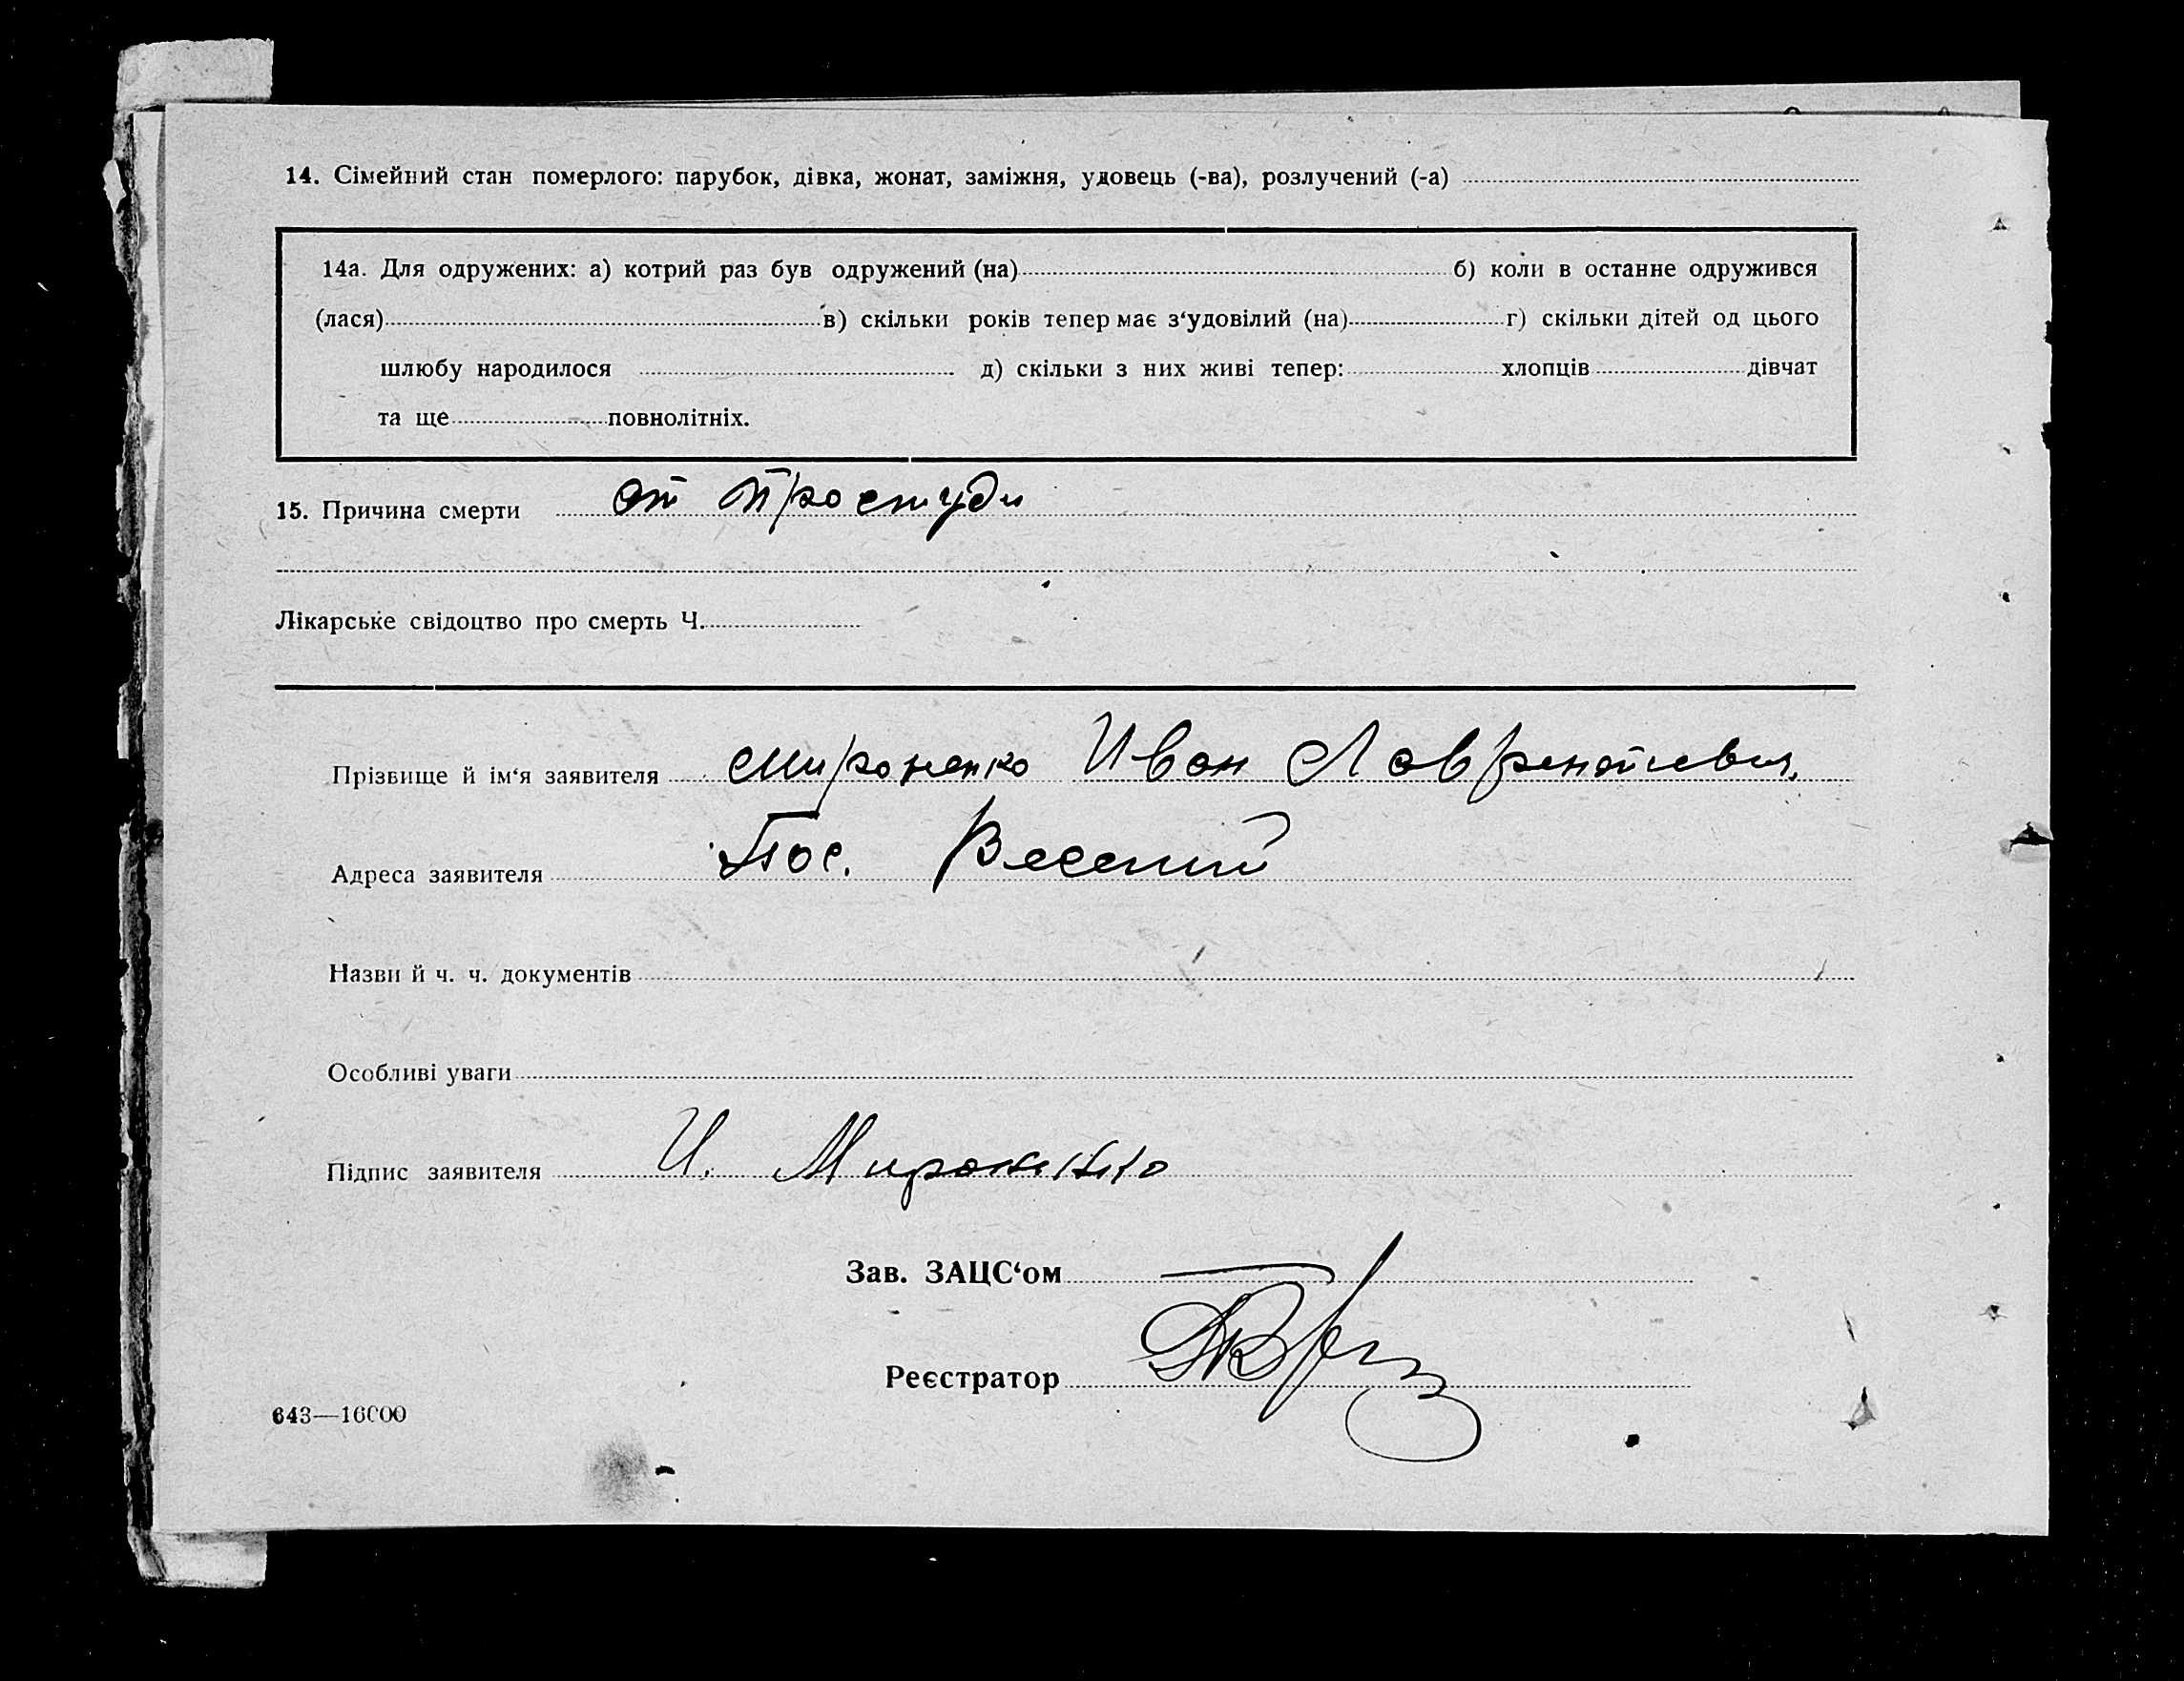 14. Сімейний стан померлого: парубок, дівка, жонат, заміжня, удовець (-ва), розлучений (-а)
14а. Для одружених: а) котрий раз був одружений (на) б) коли в останне одружився
(лася) в) скільки років тепер має з‘удовілий (на) г) скільки дітей од цього
шлюбу народилося д) скільки з них живі тепер: хлопців дівчат
та ще повнолітніх.
15. Причина смерти от простуди
Лікарське свідоцтво про смерть Ч.
Прізвище й ім‘я заявителя Мироненко Иван Лаврентиевич
Адреса заявителя Пос. Веселий
Назви й ч. ч. документів
Особливі уваги
Підпис заявителя И. Мироненко
Зав. ЗАЦС‘ом
Реєстратор
643—16000